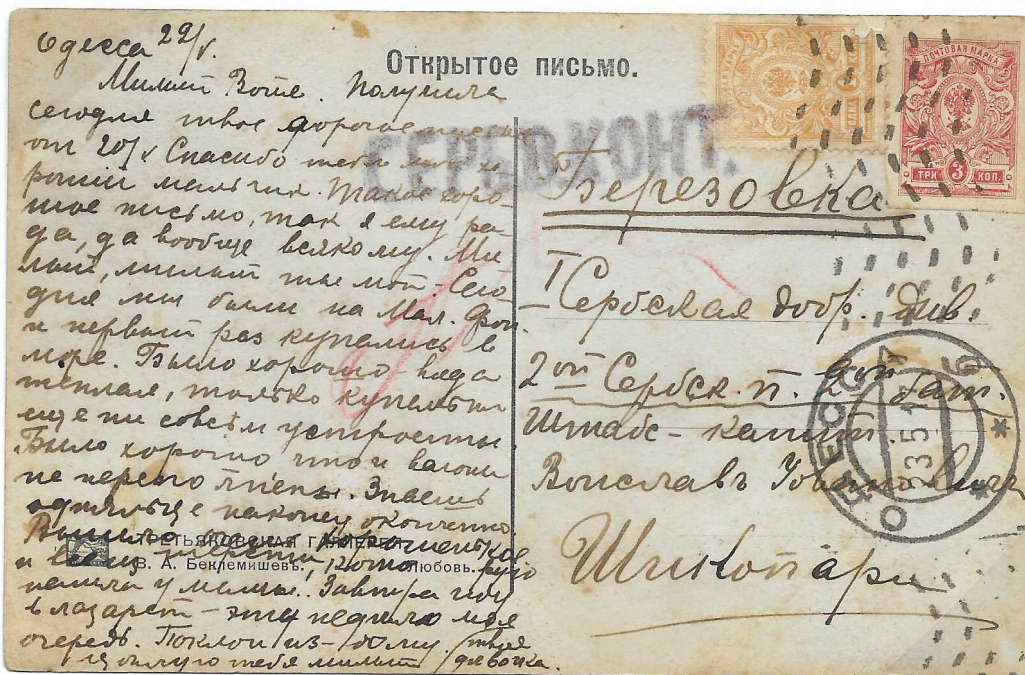 Одесса 22/V.
Открытое письмо.
Милый Воте. Получила
сегодня твое дорогое письмо
от 20/V Спасибо тебе мой хо
роший мальчик. Такое хоро
шое письмо, так я ему ра
да, да вообще всякому. Ми
лый, милый ты мой. Сего
дня мы были на Мал. Фон.
и первый раз купались в
море. Было хорошо, вода
теплая, только купальни
еще не совсем устроены.
Было хорошо что и вагоны
не переполнены. Знаешь
наконец окончено
нашла у мамы. Завтра иду
в лазарет – эту неделю моя
очередь. Поклон из-дому. твоя
Целую тебя милый девочка.
ТРЕТЬЯКОВСКАЯ ГАЛЛЕРЕЯ.
В. А. Беклемишевъ. Любовь.
СЕРБ.КОНТ.
ПОЧТОВАЯ МАРКА
ТРИ 3 КОП.
Березовка
I Сербская добр. див.
2ой Сербск. п. бат.
Штабс-капит.
Воиславъ
Шикопари
ОДЕССА
23 5 17